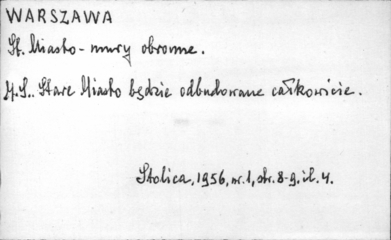 WARSZAWA
St. Miasto - mury obronne.
H.S.. Stare Miasto będzie odbudowane całkowicie.
Stolica, 1956, nr. 1, str. 8-9. il. 4.